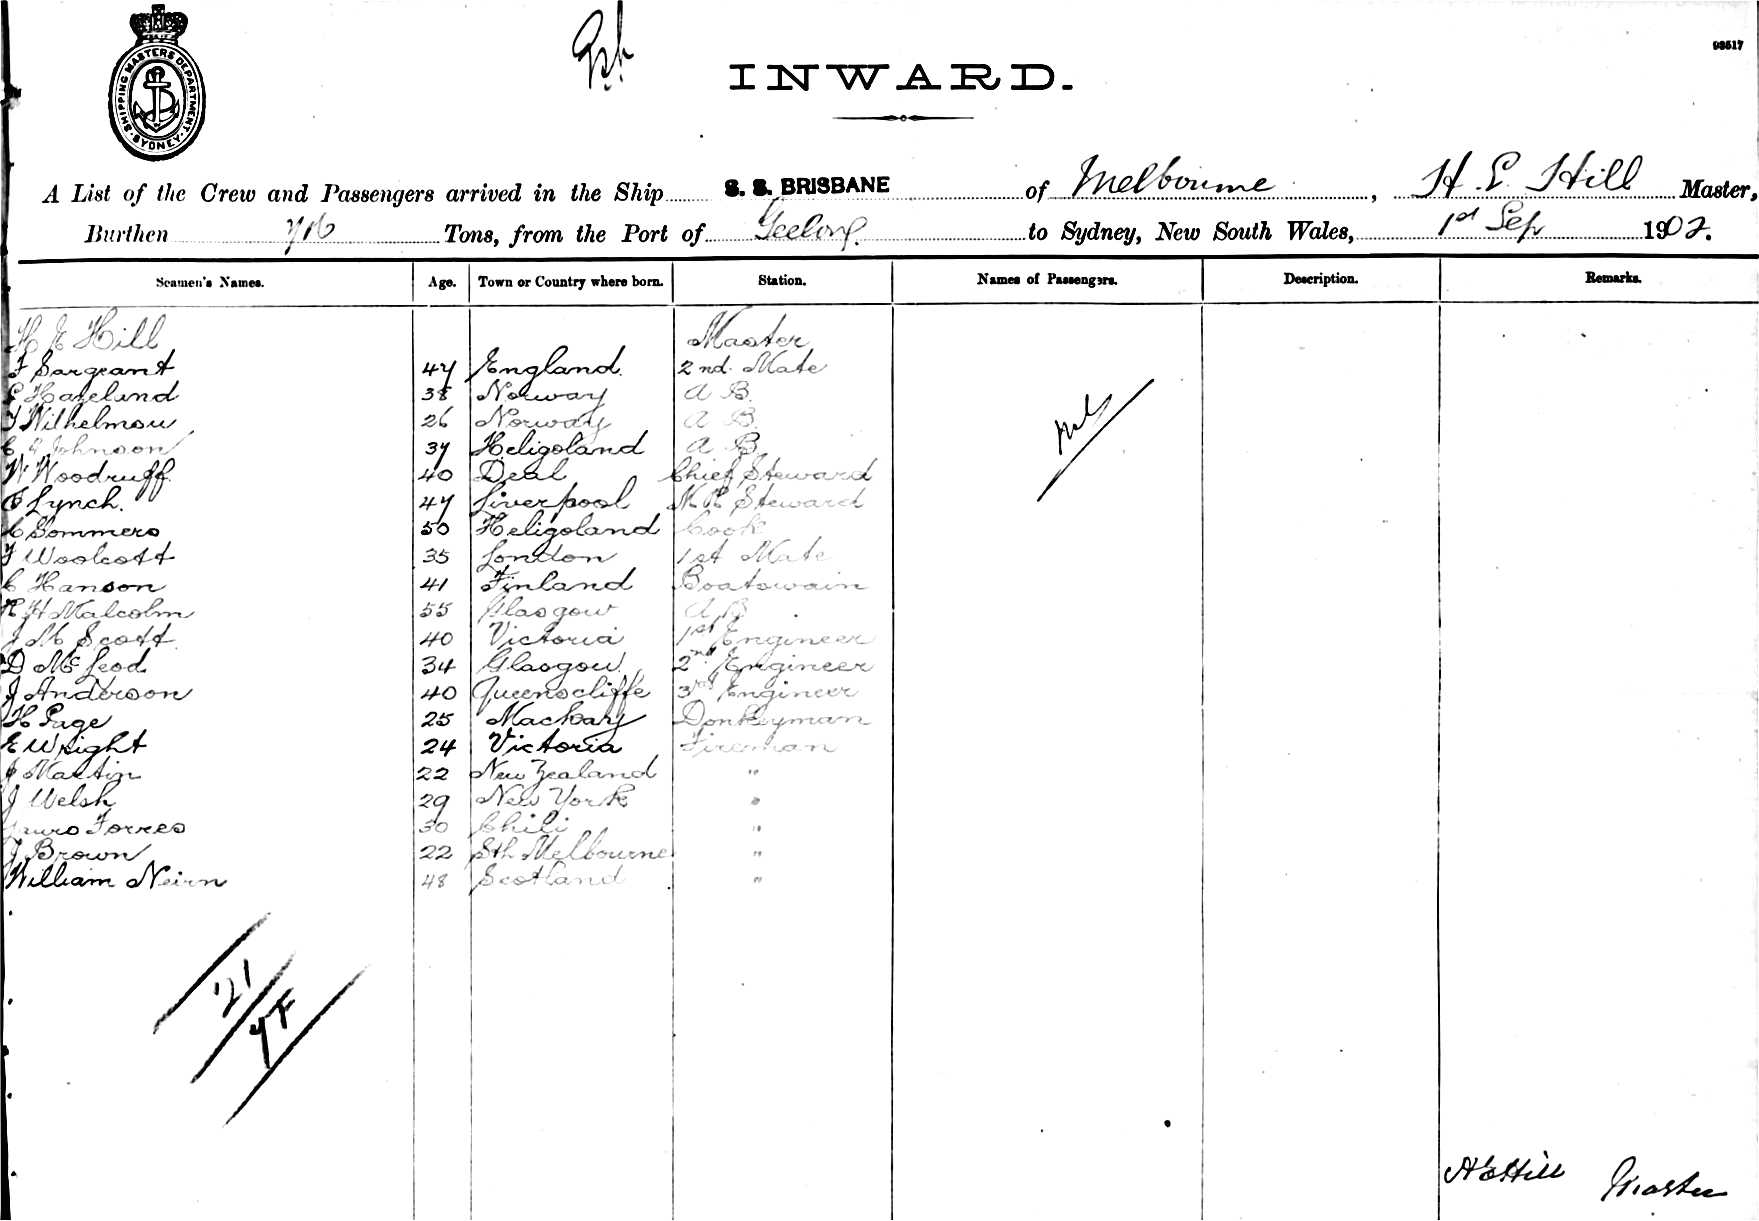 SHIPPING MASTERS DEPARTMENT
SYDNEY
93517
INWARD.
A List of the Crew and Passengers arrived in the Ship S. S. BRISBANE of Melbourne, H. E. Hill Master,
Burthen Tons, from the Port of Geelong to Sydney, New South Wales, 1st Sep 1902.
Seamen's Names. Age. Town or Country where born. Station. Names of Passengers. Description. Remarks.
H E Hill Master
F Sargeant 47 England 2nd Mate
E Hagelund 38 Norway A B.
T Wilhelmson 26 Norway A B.
Johnson 37 Heligoland A B.
W Woodruff 40 Deal Chief Steward
Lynch. 47 Liverpool Steward
C Sommers 50 Heligoland Cook
F Woolcott 35 London 1st Mate
C Hanson 41 Finland Boatswain
R H Malcolm 55 Glasgow A B
J M Scott 40 Victoria 1st Engineer
D McLeod 34 Glasgow 2nd Engineer
J Anderson 40 Queenscliffe 3rd Engineer
H Page 25 Mackay Donkeyman
E Wright 24 Victoria Fireman
J Martin 22 New Zealand "
J Welsh 29 New York "
Torres 30 Chili "
J Brown 22 Sth Melbourne "
William Neirn 48 Scotland "
Nil
21
H E Hill Master